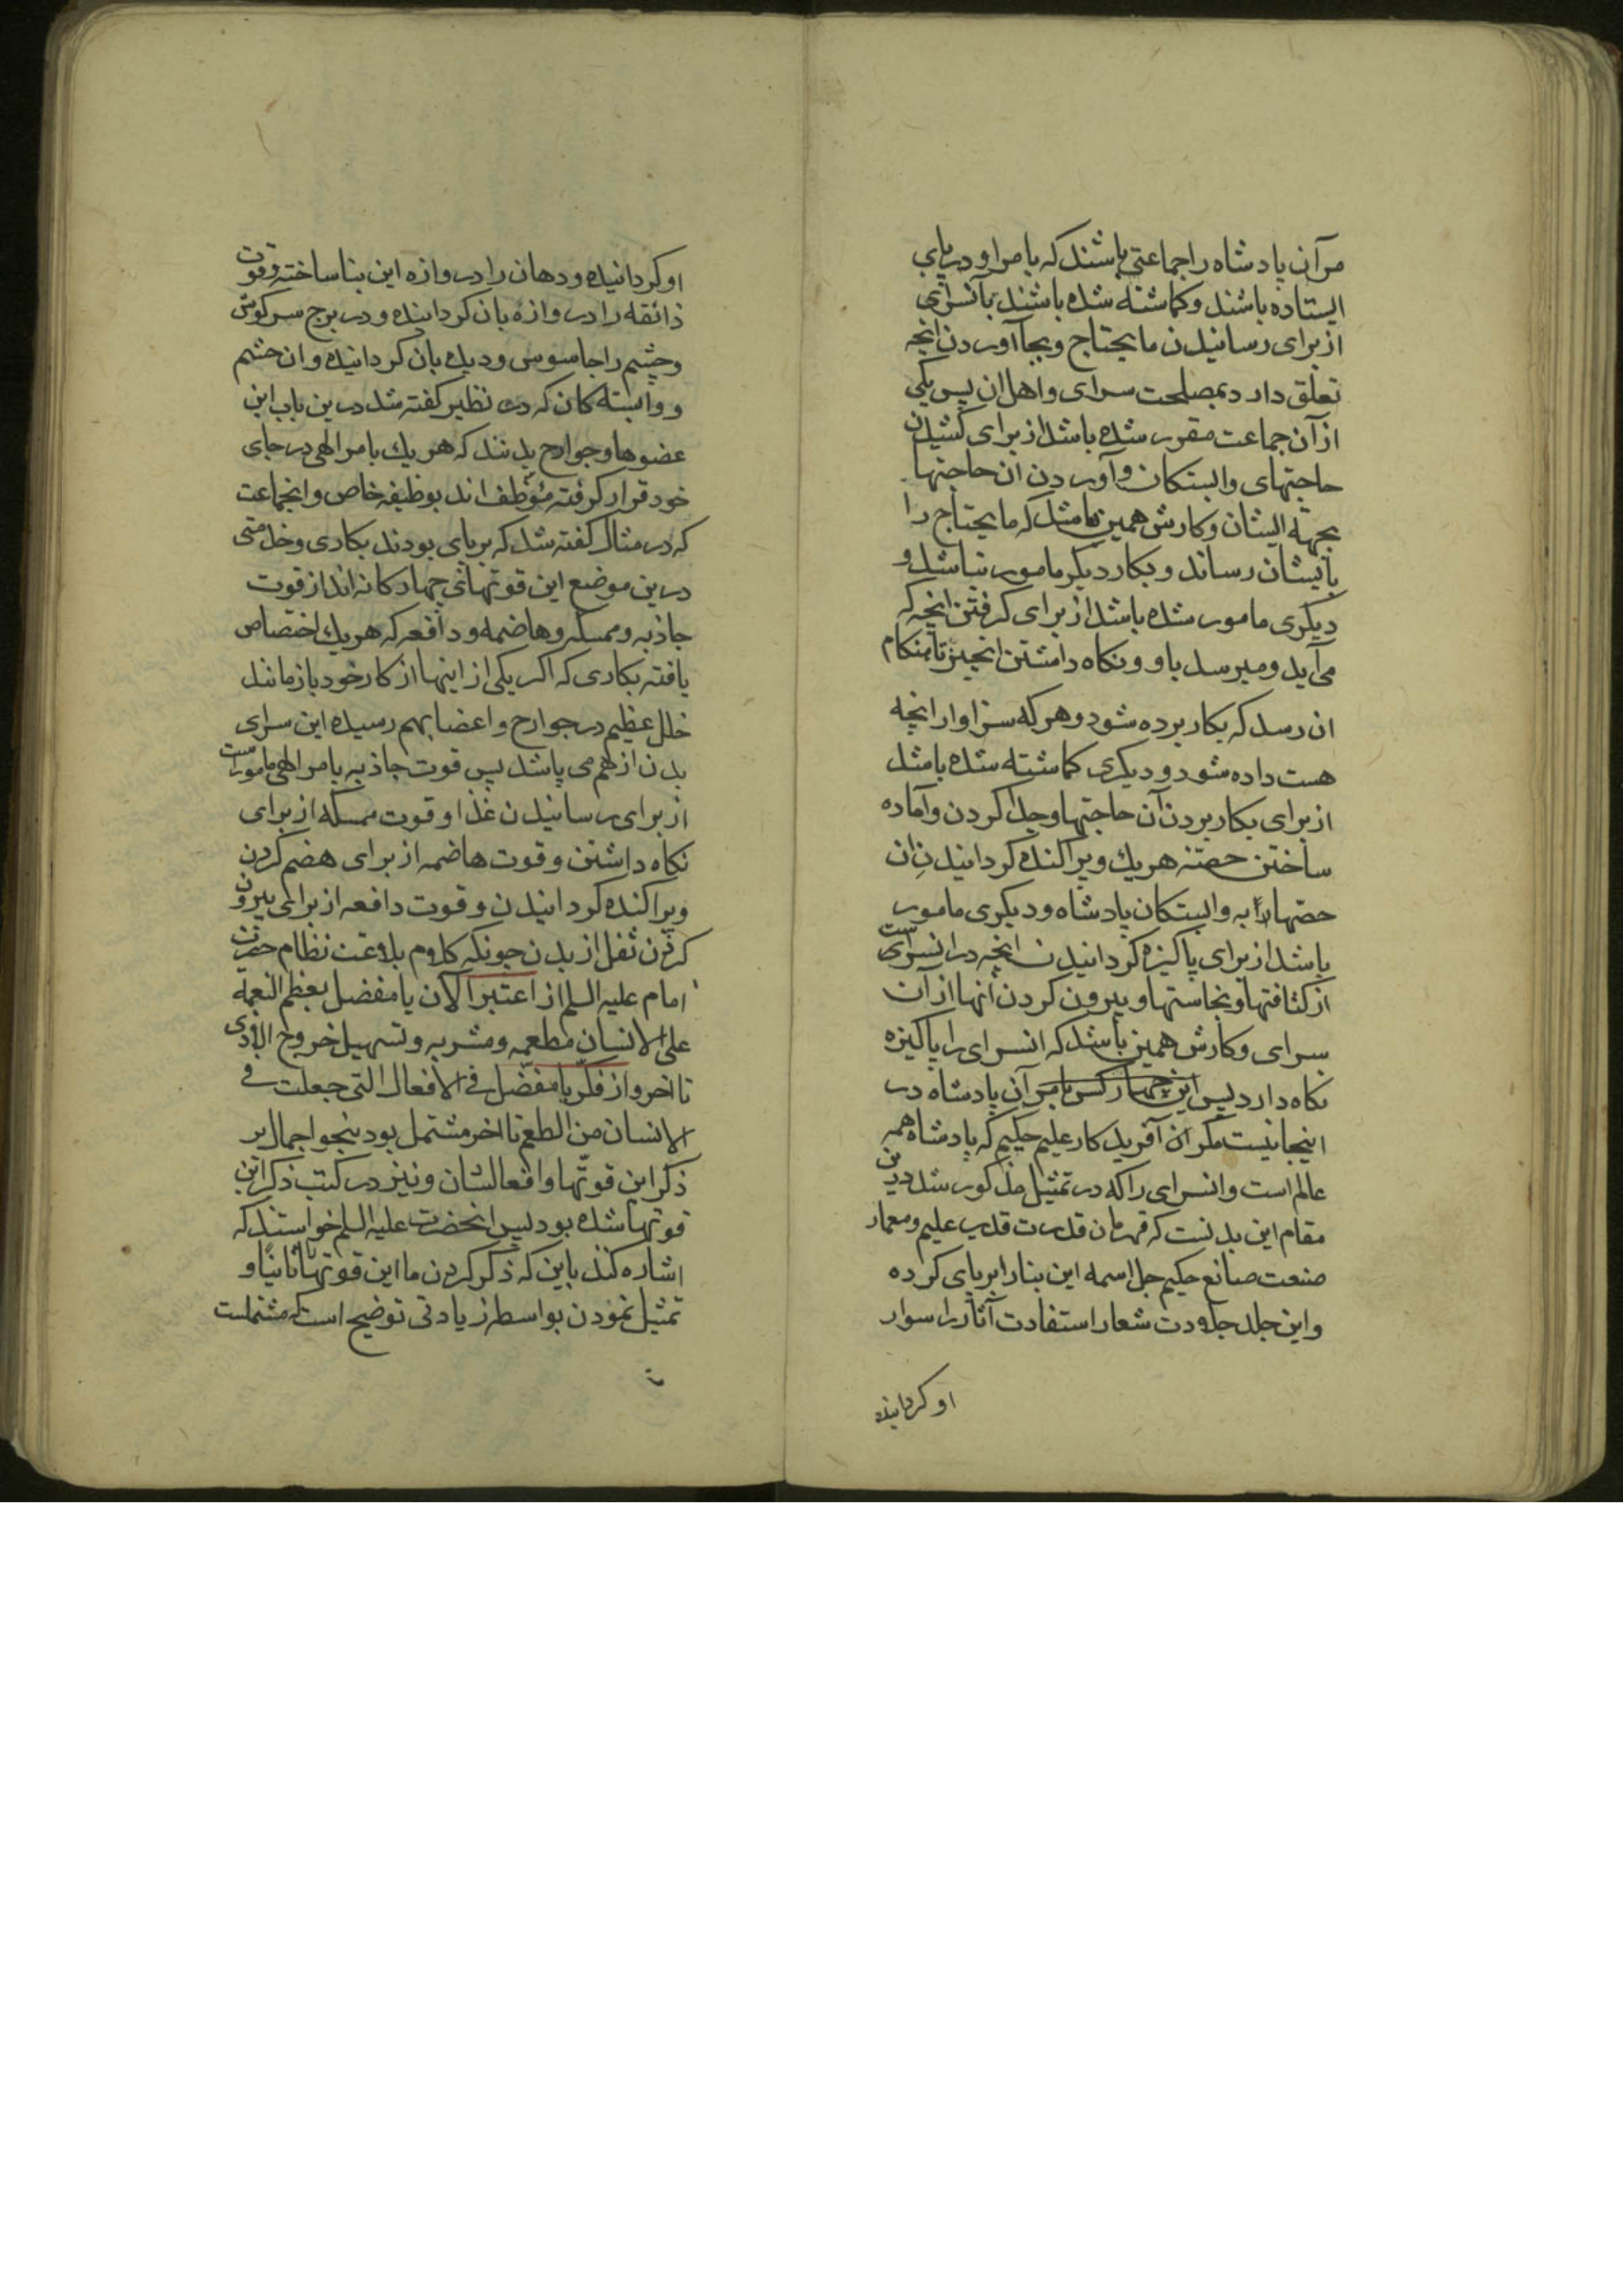 مرآن پادشاه را جماعتی باشند که بامر او در پای
ایستاده باشند و کماشته شده باشند بآنسرای
از برای رسانیدن ما یحتاج و بجا آوردن انچه
تعلق دارد بمصلحت سرای و اهل ان پس یکی
از آن جماعت مقرر شده باشد از برای کشیدن
حاجتهای وابستکان و آوردن ان حاجتها
بجهة ایشان و کارش همین باشد که ما یحتاج را
بایشان رساند و بکار دیکر مامور نباشد و
دیکری مامور شده باشد از برای کرفتن انچه که
می آید و میرسد باو و نکاه داشتن انچیز تا هنکام
ان رسد که بکار برده شود و هر که سزاوار انچه
هست داده شود و دیکری کماشته شده باشد
از برای بکار بردن آن حاجتها و جدا کردن و آماده
ساختن حصتهٔ هر یك و پراکنده کردانیدن ان
حصتها را به وابستکان پادشاه و دیکری مامور
باشد از برای پاکیزه کردانیدن انچه در انسرای ست
از کثافتها و نجاستها و بیرون کردن آنها از آن
سرای و کارش همین باشد که انسرای را پاکیزه
نکاه دارد پس این چهار کس بامر آن پادشاه در
اینجا نیست مکر ان آفریدکار علیم حکیم که پادشاه همه
عالم است و انسرای را که در تمثیل مذکور شد درین
مقام این بدنست که قهرمان قدرت قدیر علیم و معمار
صنعت صانع حکیم جل اسمه این بنا را بر پای کرده
و این جلد جلادت شعار استفادت آثار را سوار
او کردانیده
او کردانیده و دهان را دروازه این بنا ساخته و قوت
ذائقه را دروازه بان کردانیده و در برج سر کوش
و چشم را جاسوس و دیده بان کردانیده و ان حشم
و وابسته کان که در نظیر کفته شد درین باب این
عضوها و جوارح بدنند که هر یك بامر الهی در جای
خود قرار کرفته مؤظف اند بوظیفه خاص و انجماعت
که در مثال کفته شد که بر پای بودند بکاری و خدمتی
درین موضع این قوتهای چهارکانه اند از قوت
جاذبه و ممسکه و هاضمه و دافعه که هر یك اختصاص
یافته بکاری که اکر یکی از اینها از کار خود باز ماند
خلل عظیم در جوارح و اعضا بهم رسیده این سرای
بدن از هم می پاشد پس قوت جاذبه بامر الهی مامورست
از برای رسانیدن غذا و قوت ممسکه از برای
نکاه داشتن و قوت هاضمه از برای هضم کردن
و پراکنده کردانیدن و قوت دافعه از برای بیرون
کردن ثفل از بدن چونکه کلام بلاغت نظام حضرت
امام علیه السلم از اعتبر الان یا مفضل بعظم النعمة
علی الانسان مطعمه و مشربه و تسهیل خروج الاذی
تا اخر و از فکر یا مفضل فی الافعال التی جعلت فی
الانسان من الطعم تا اخر مشتمل بود بنحو اجمال بر
ذکر این قوتها و افعالشان و نیز در کتب ذکر این
قوتها شده بود پس انحضرت علیه السلم خواستند که
اشاره کنند باین که ذکر کردن ما این قوتها را ثانیا و
تمثیل نمودن بواسطه زیادتی توضیح است که مشتملست